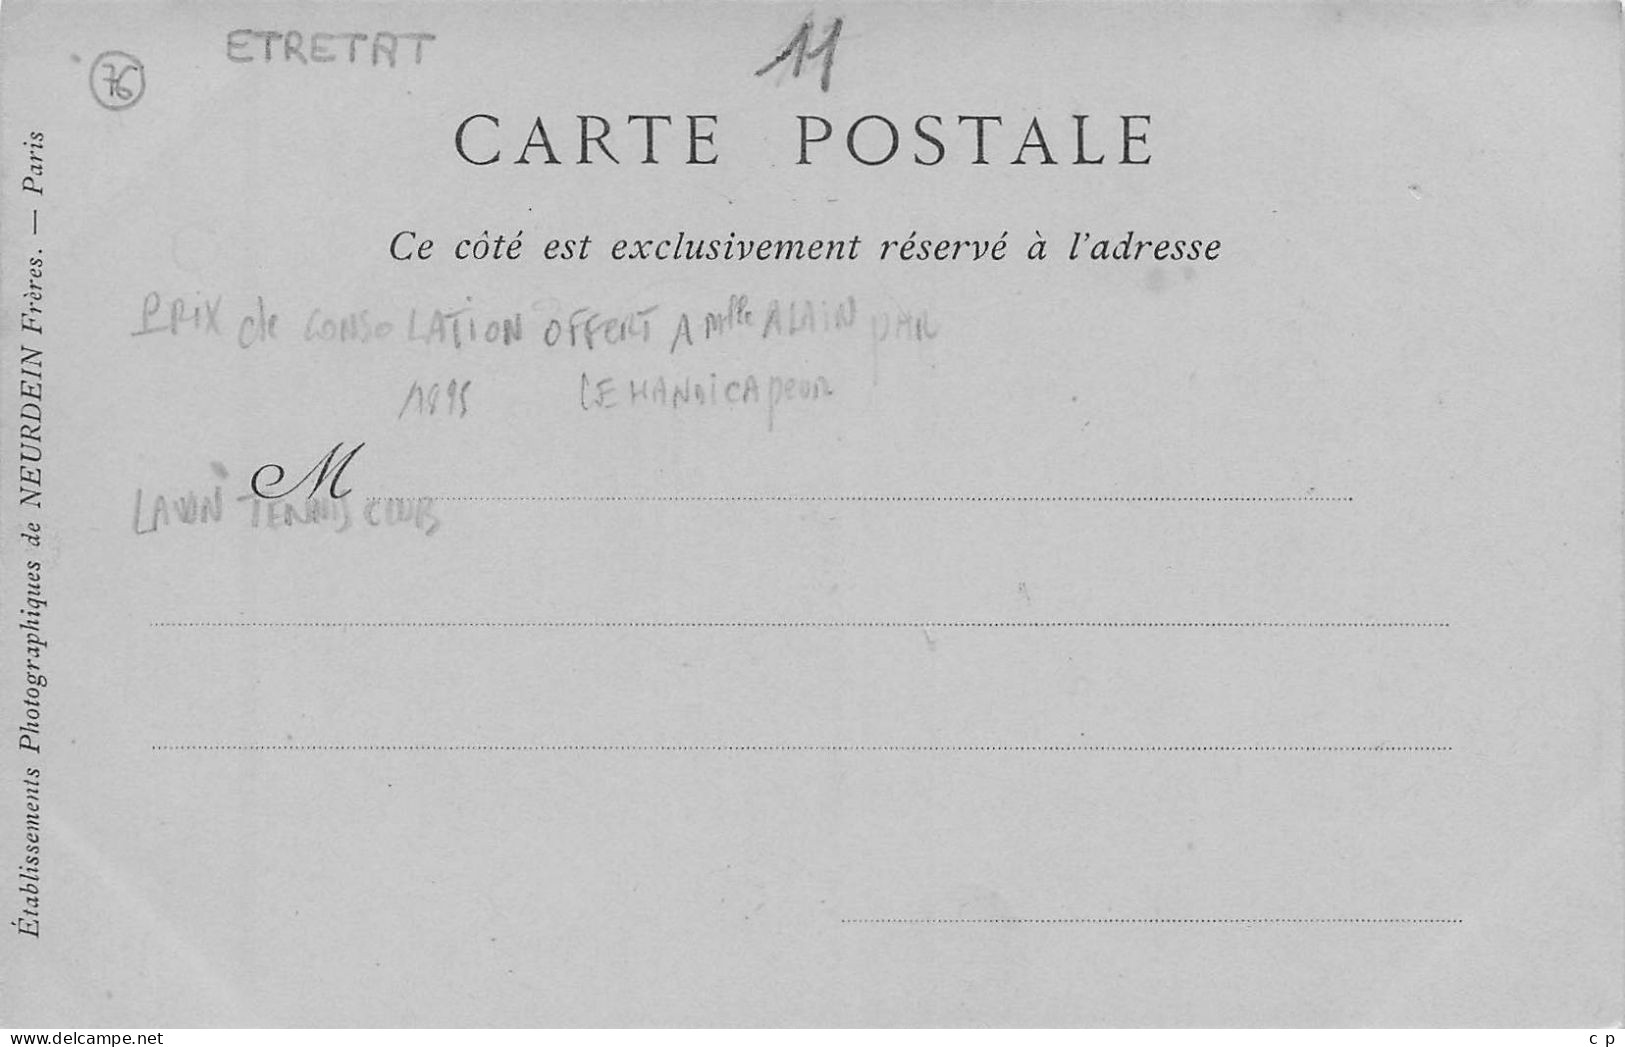 ETRETAT
11
76
CARTE POSTALE
Ce côté est exclusivement réservé à l'adresse
PRIX de CONSOLATION OFFERT A Mlle ALAIN PAR
1895 LE HANDICAPEUR
M
LAWN TENNIS CLUB
Établissements Photographiques de NEURDEIN Frères. — Paris
www.delcampe.net
c p